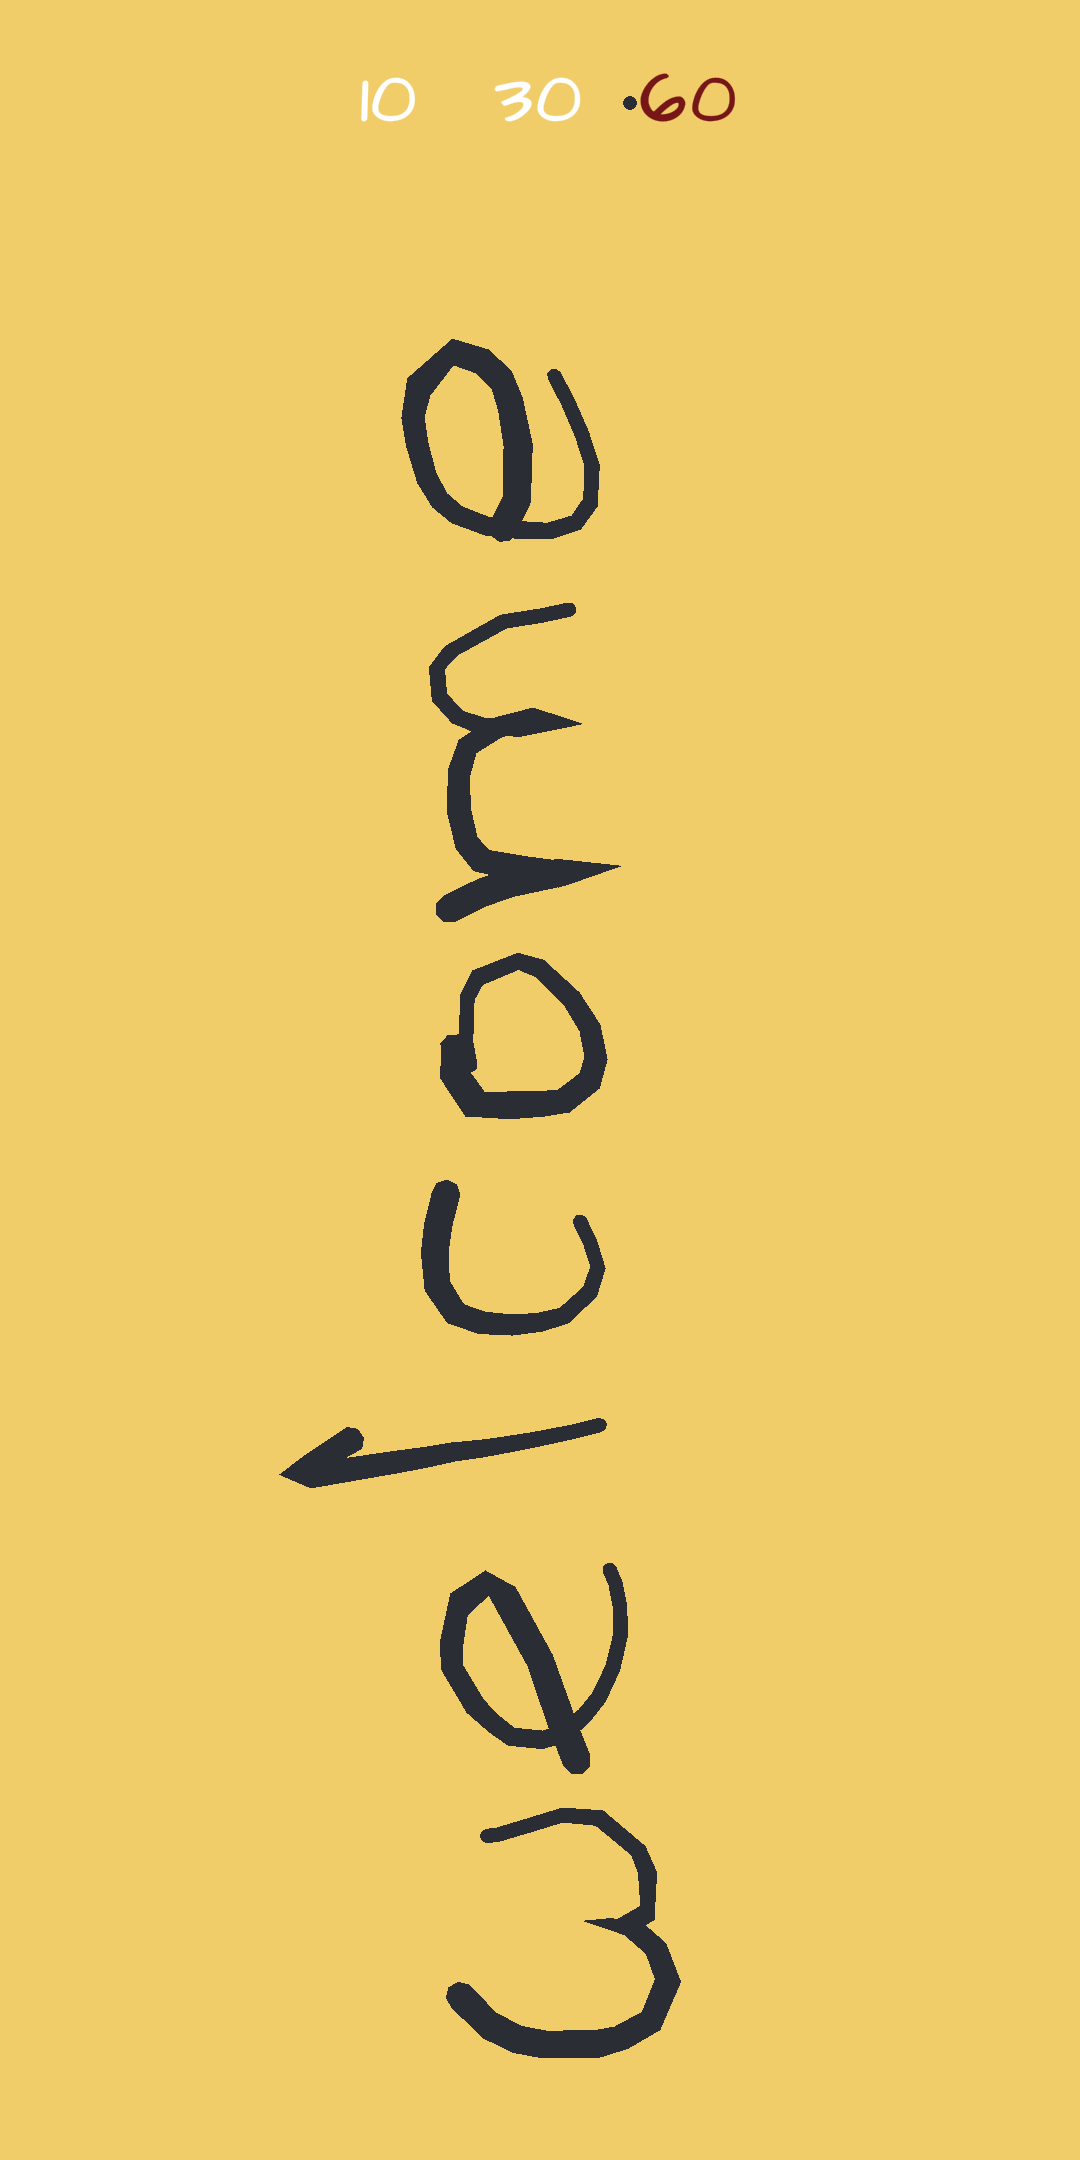 10 30 •60
welcome